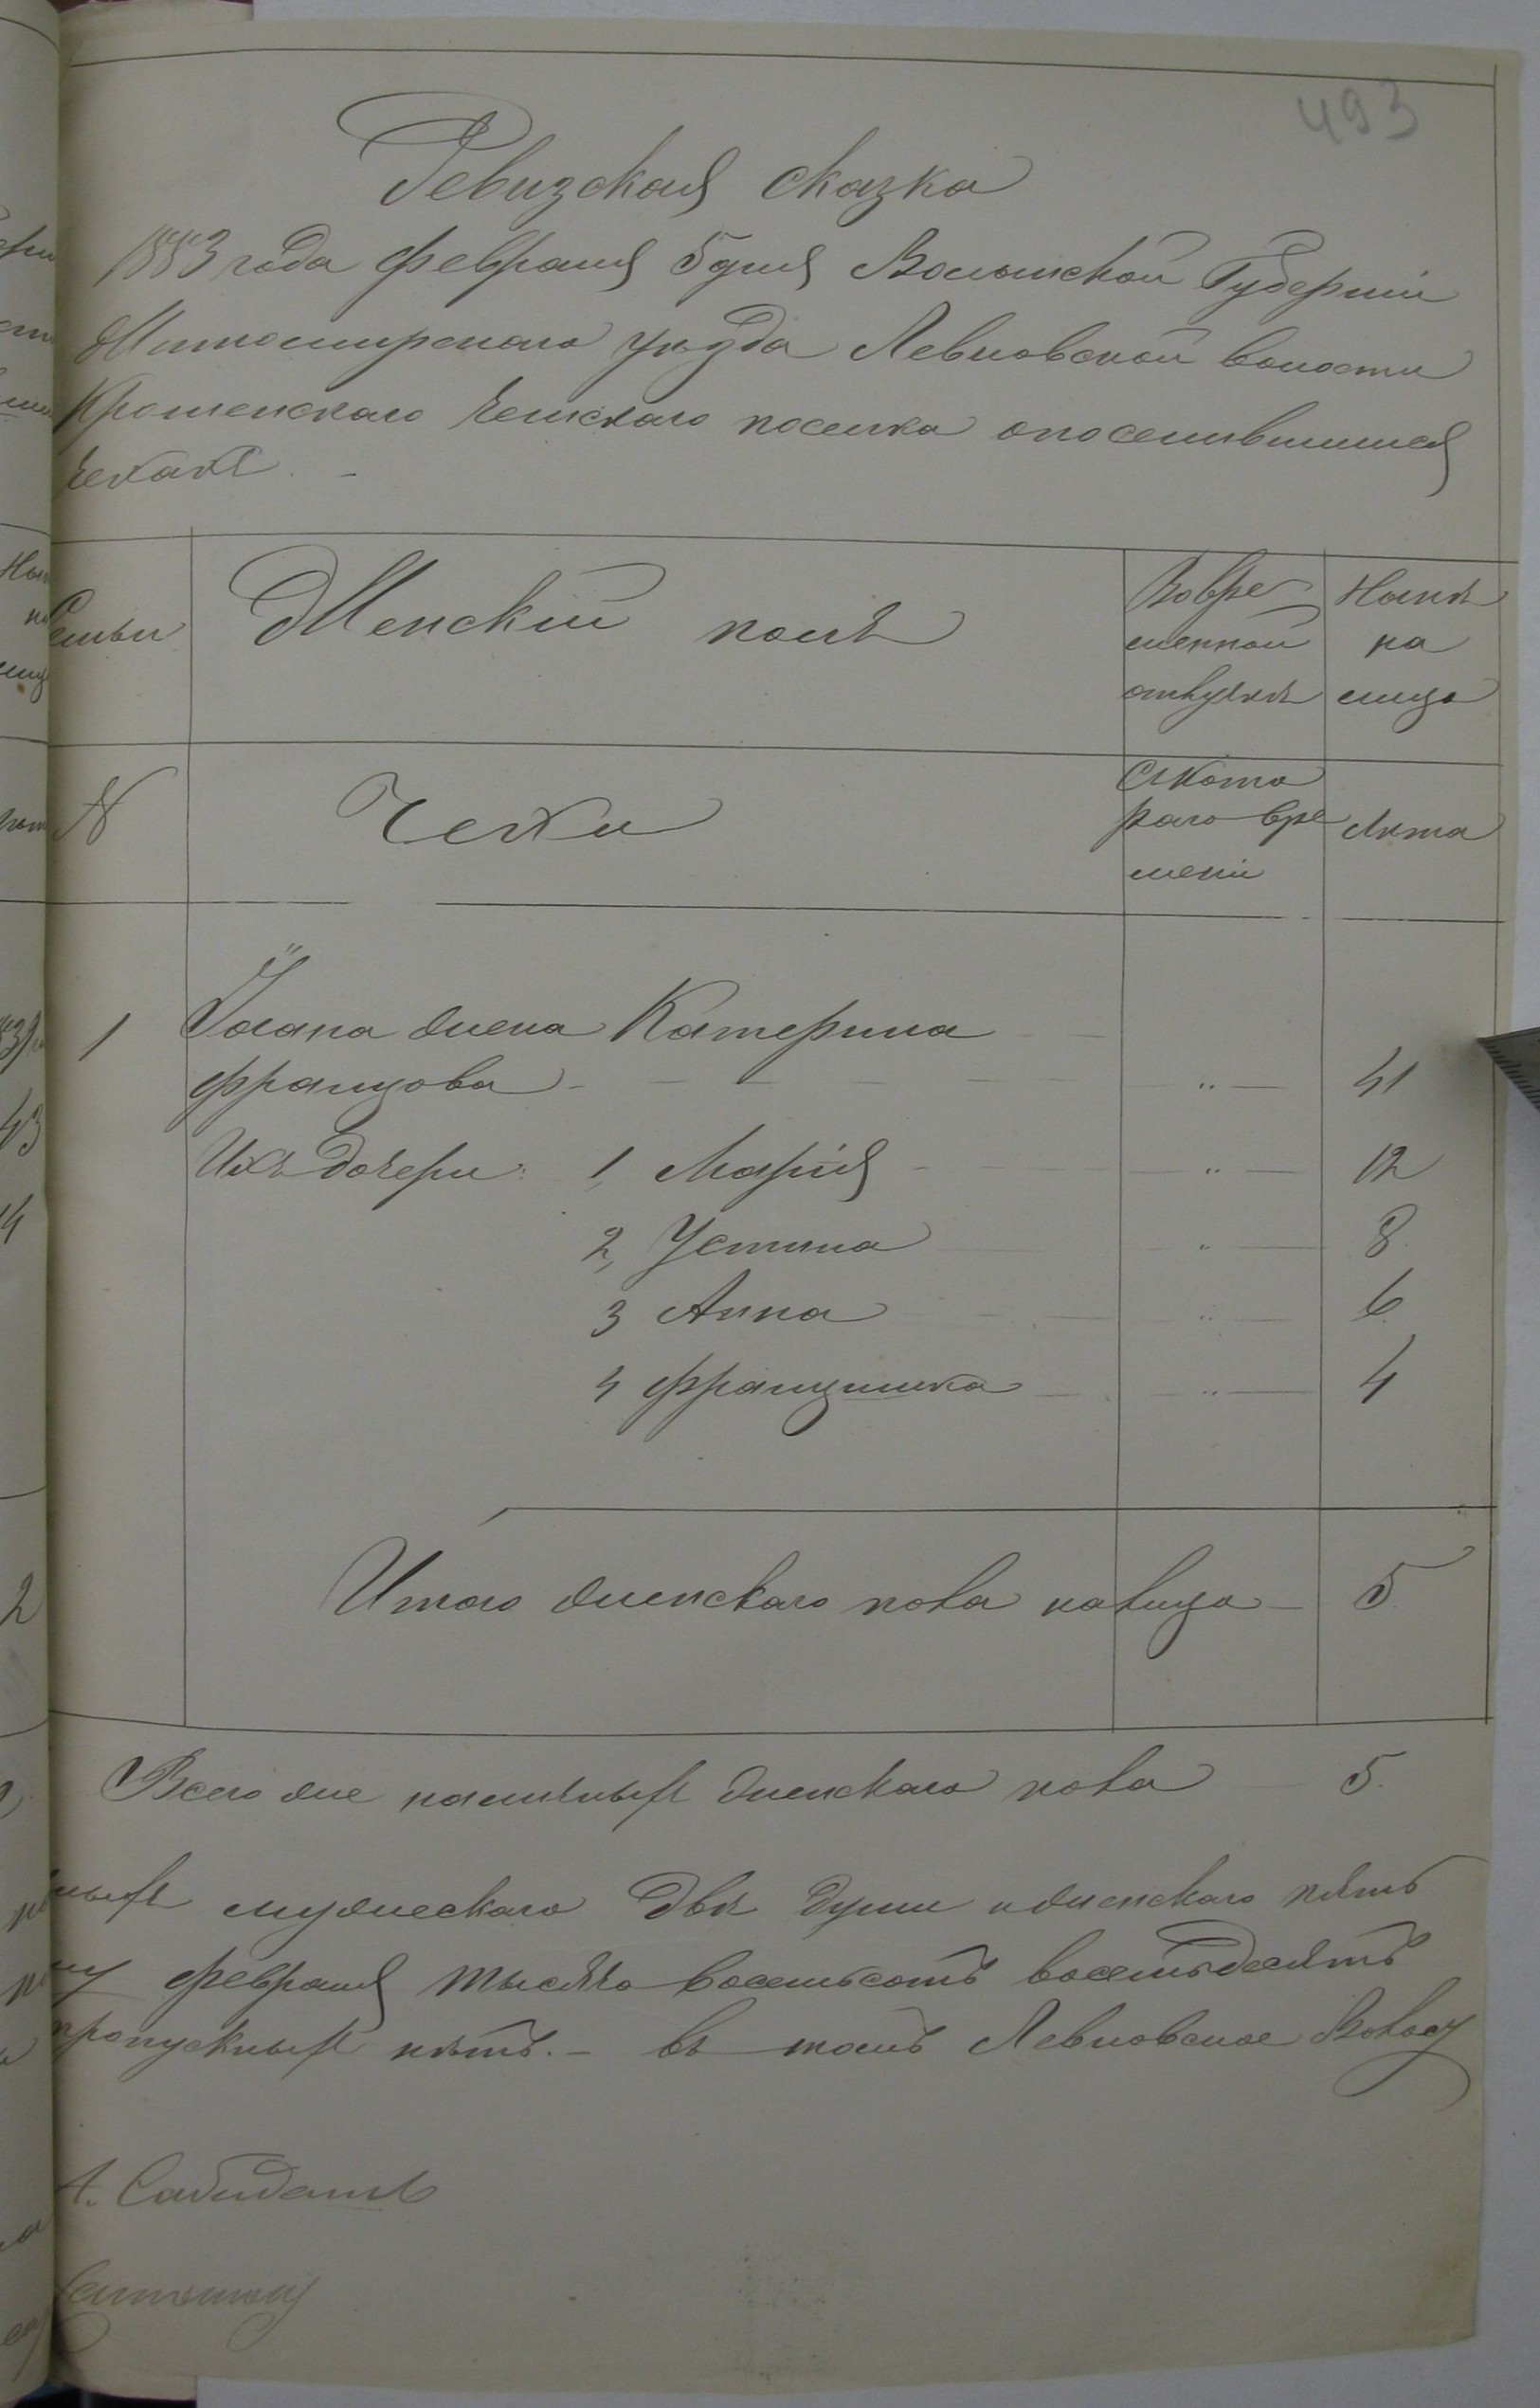 493
Ревизская сказка
1883 года февраля 5 дня Волынской Губерніи
Житомирскаго уѣзда Левковской волости
Крошенскаго Чешскаго поселка опоселившимся
Чехахъ. -
Семьи
Женскій полъ
Во вре
менной
отлучкѣ
Нынѣ
на
лицо
N
Чехи
Съ кото
раго вре
мени
Лѣта
1 Іогана жена Катерина
Францова - " - 41
Ихъ дочери: 1, Марія - " - 12
2, Устина " - 8
3 Анна " - 6
4 Францишка - " - 4
Итого женскаго пола на лицо - 5
Всего же наличныхъ женскаго пола 5.
ныхъ мужескаго двѣ души и женскаго пять
февраля тысяча восемьсотъ восемьдесятъ
пропускныхъ нѣтъ. - въ томъ Левковское Волос
А.